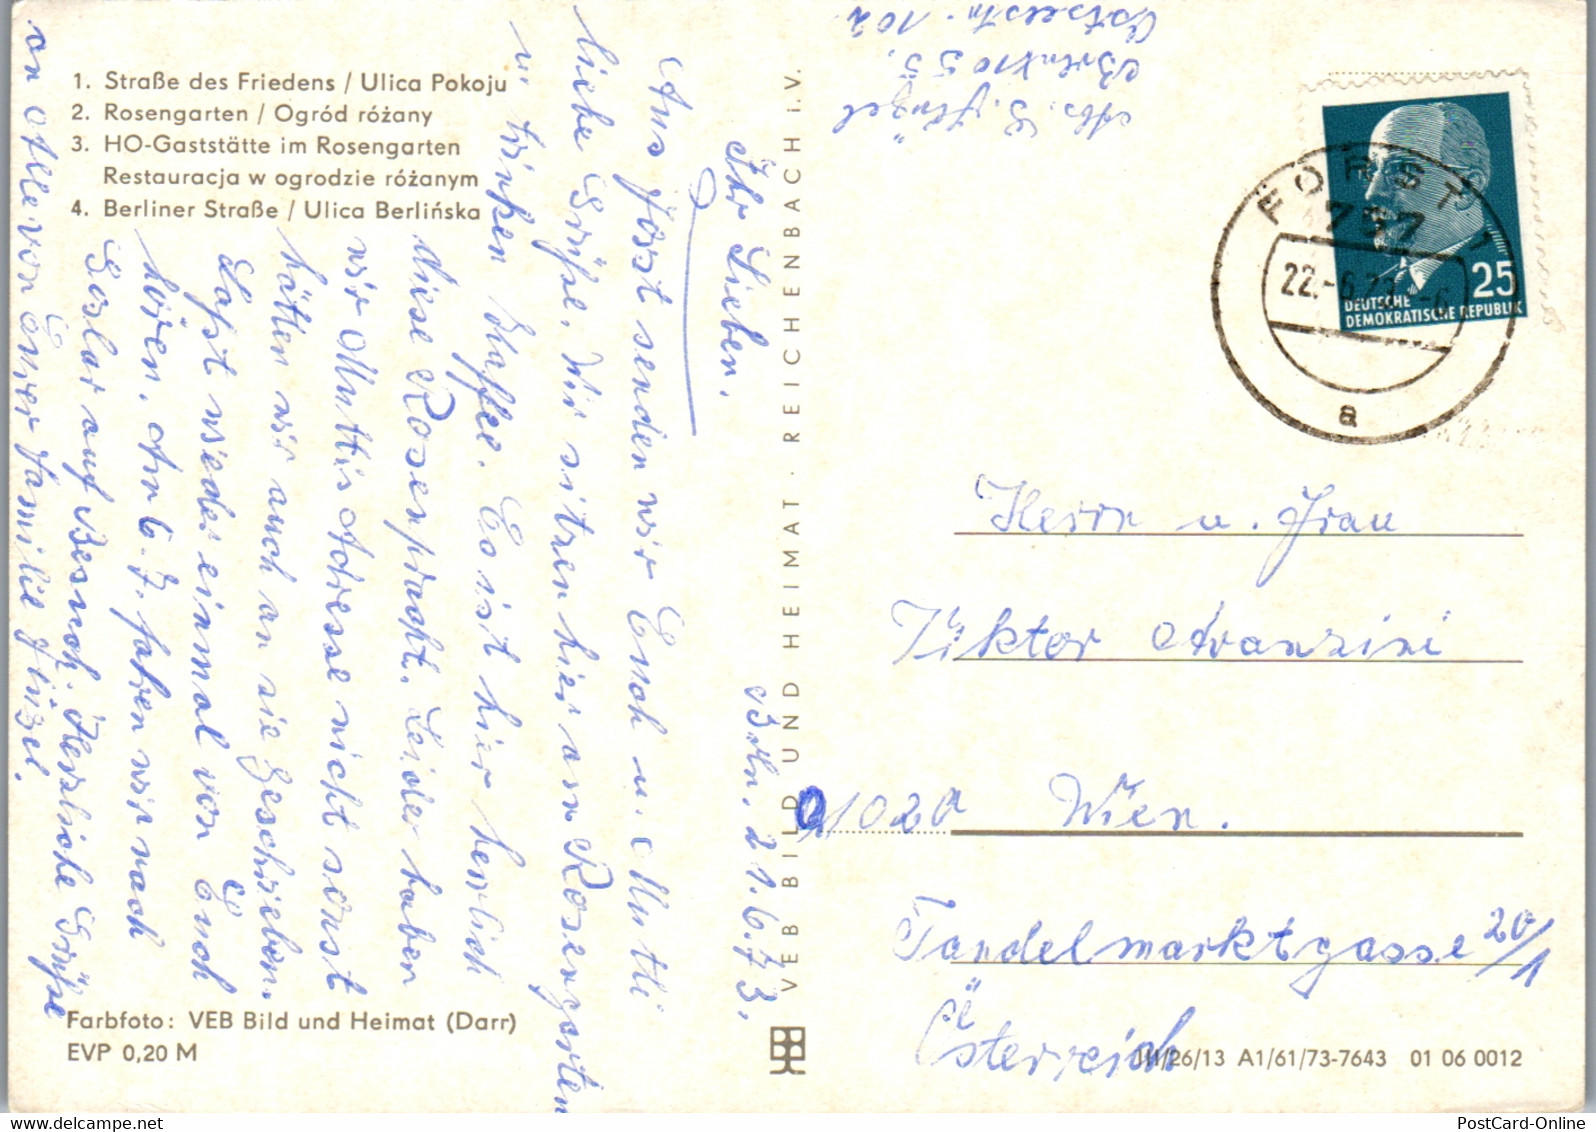 1. Straße des Friedens / Ulica Pokoju
2. Rosengarten / Ogród różany
3. HO-Gaststätte im Rosengarten
Restauracja w ogrodzie różanym
4. Berliner Straße / Ulica Berlińska
Brln. 21.6.73,
Ihr Lieben.
Aus Forst senden wir Euch u. Mutti
liebe Grüße. Wir sitzen hier am Rosengarten
u. trinken Kaffee. Es ist hier herrlich
diese Rosenpracht. Leider haben
wir Muttis Adresse nicht sonst
hätten wir auch an sie geschrieben.
Laßt wieder einmal von Euch
hören. Am 6.7. fahren wir nach
Goslar auf Besuch. Herzliche Grüße
an Alle von Eurer Familie
Farbfoto: VEB Bild und Heimat (Darr)
EVP 0,20 M
VEB BILD UND HEIMAT · REICHENBACH i. V.
Abs. G.
1055,
102
FORST 1
757
22.-6.73
a
25
DEUTSCHE
DEMOKRATISCHE REPUBLIK
Herrn u. Frau
Viktor Aranzini
A 1020 Wien.
Tandelmarktgasse 20/1
Österreich
III/26/13 A1/61/73-7643 01 06 0012
PostCard-Online